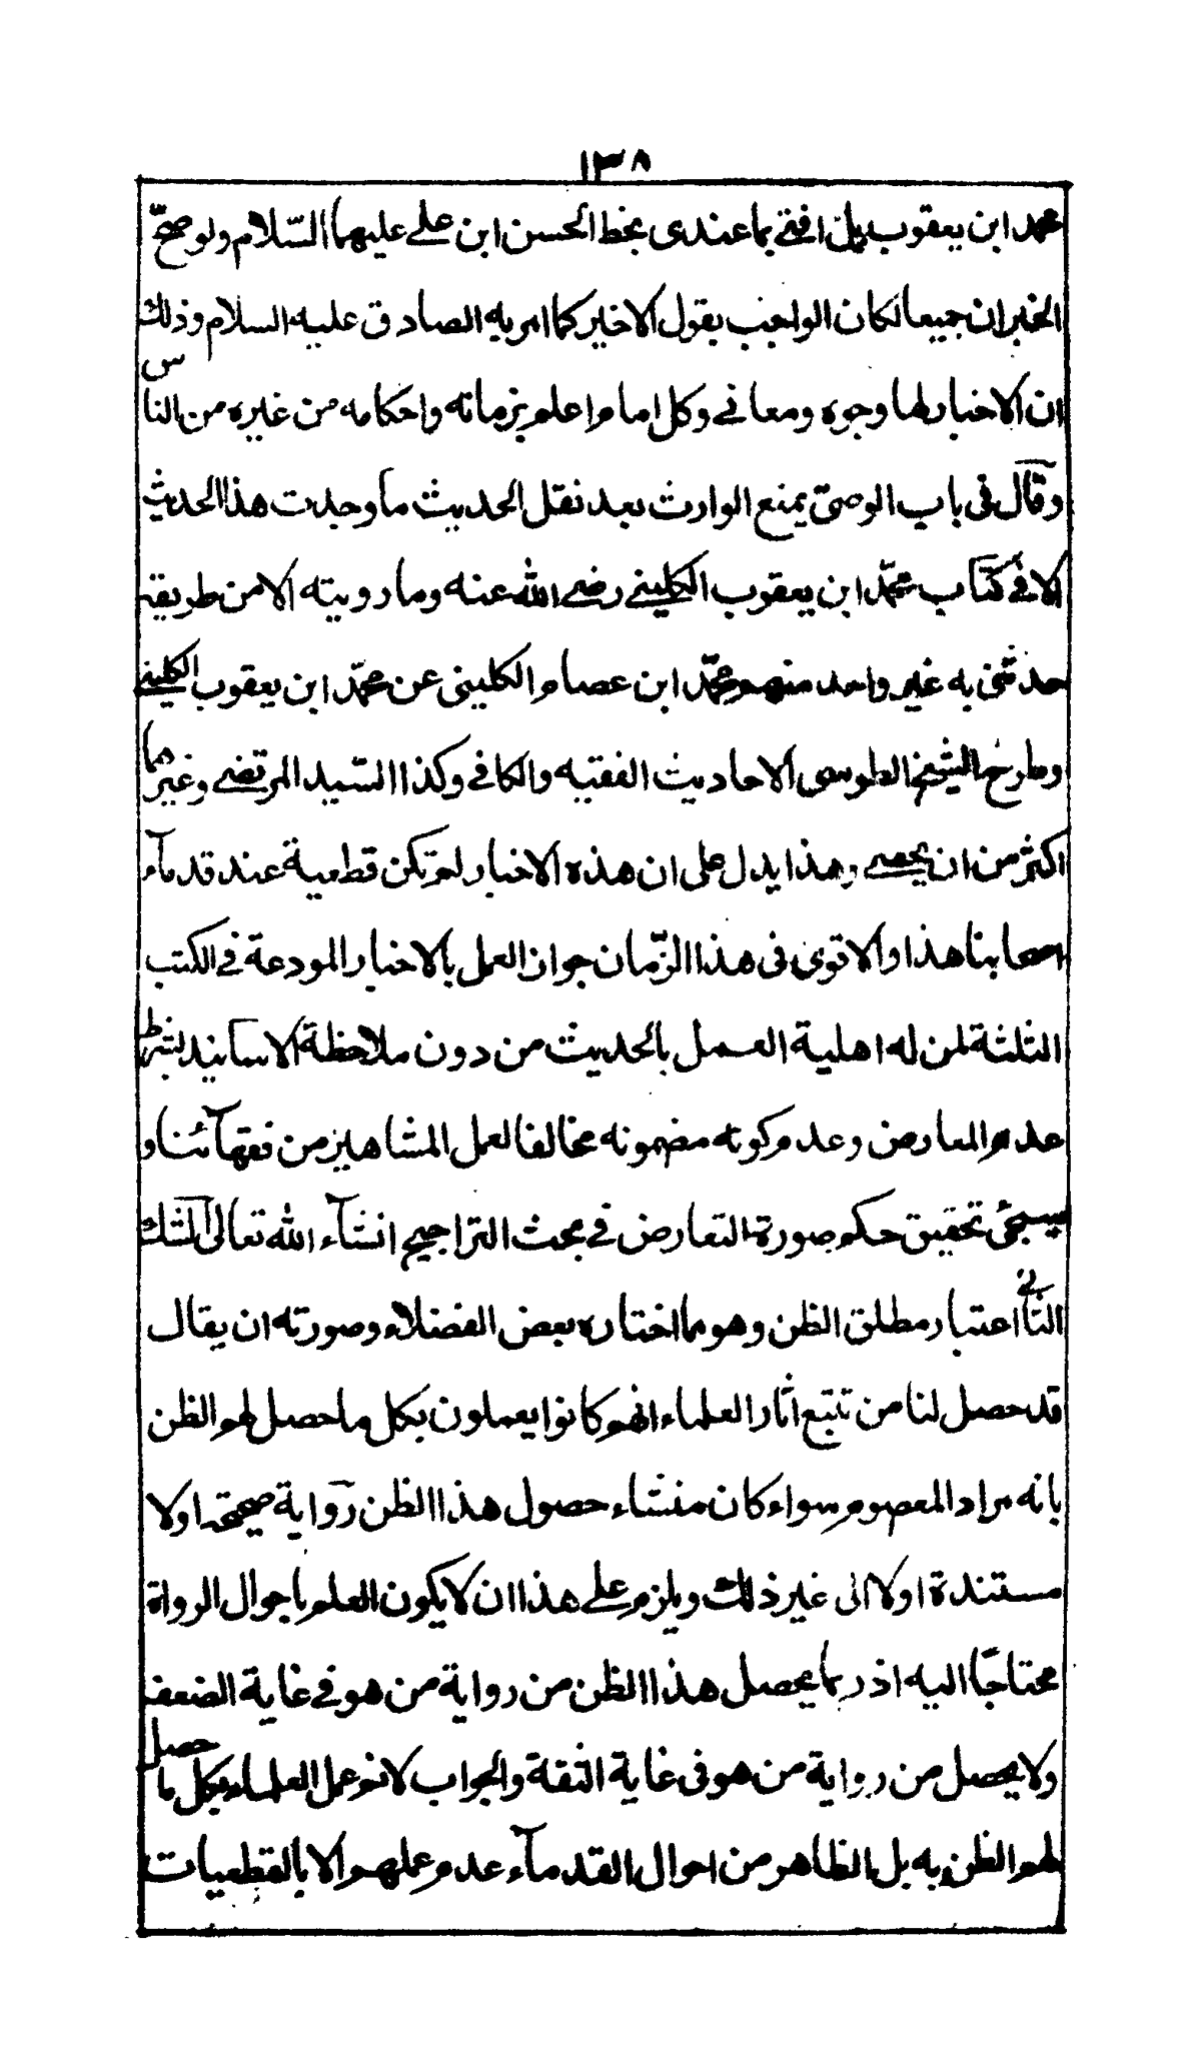 ١٣٨
محمد ابن يعقوب بل افتى بما عندى بخط الحسن ابن على عليهما السّلام ولو صحّ
الخبران جميعا لكان الواجب بقول الاخير كما امر به الصادق عليه السلام وذلك
ان الاخبار لها وجوه ومعانى وكل امام اعلم بزمانه واحكامه من غيره من الناس
وقال فى باب الوصىّ يمنع الوارث بعد نقل الحديث ما وجدت هذا الحديث
الا فى كتاب محمّد ابن يعقوب الكلينى رضى الله عنه وما رويته الا من طريقه
حدثنى به غير واحد منهم محمّد ابن عصام الكلينى عن محمّد ابن يعقوب الكلينى
وطرح الشيخ الطوسى الاحاديث الفقيه والكافى وكذا السّيد المرتضى وغيرهما
اكثر من ان يحصى وهذا يدل على ان هذه الاخبار لم تكن قطعية عند قدمآء
اصحابنا هذا والاقوى فى هذا الزّمان جواز العمل بالاخبار المودعة فى الكتب
الثلثة لمن له اهلية العمل بالحديث من دون ملاحظة الاسانيد بشرط
عدم المعارض وعدم كونه مضمونه مخالفا لعمل المشاهير من فقهآئنا و
سيجئ تحقيق حكم صورة التعارض فى مبحث التراجيح انشآء الله تعالى الشك
الثانى اعتبار مطلق الظن وهو مما اختاره بعض الفضلاء وصورته ان يقال
قد حصل لنا من تتبع اثار العلماء انهم كانوا يعملون بكل ما حصل لهم الظن
بانه مراد المعصوم سواء كان منشاء حصول هذا الظن رواية صحيحة او لا
مستندة او لا الى غير ذلك ويلزم على هذا ان لا يكون العلم باحوال الرواة
محتاجًا اليه اذ ربما يحصل هذا الظن من رواية من هو فى غاية الضعف
ولا يحصل من رواية من هو فى غاية الثقة والجواب لا نم عمل العلماء بكل ما حصل
لهم الظن به بل الظاهر من احوال القدمآء عدم عملهم الا بالقطعيات